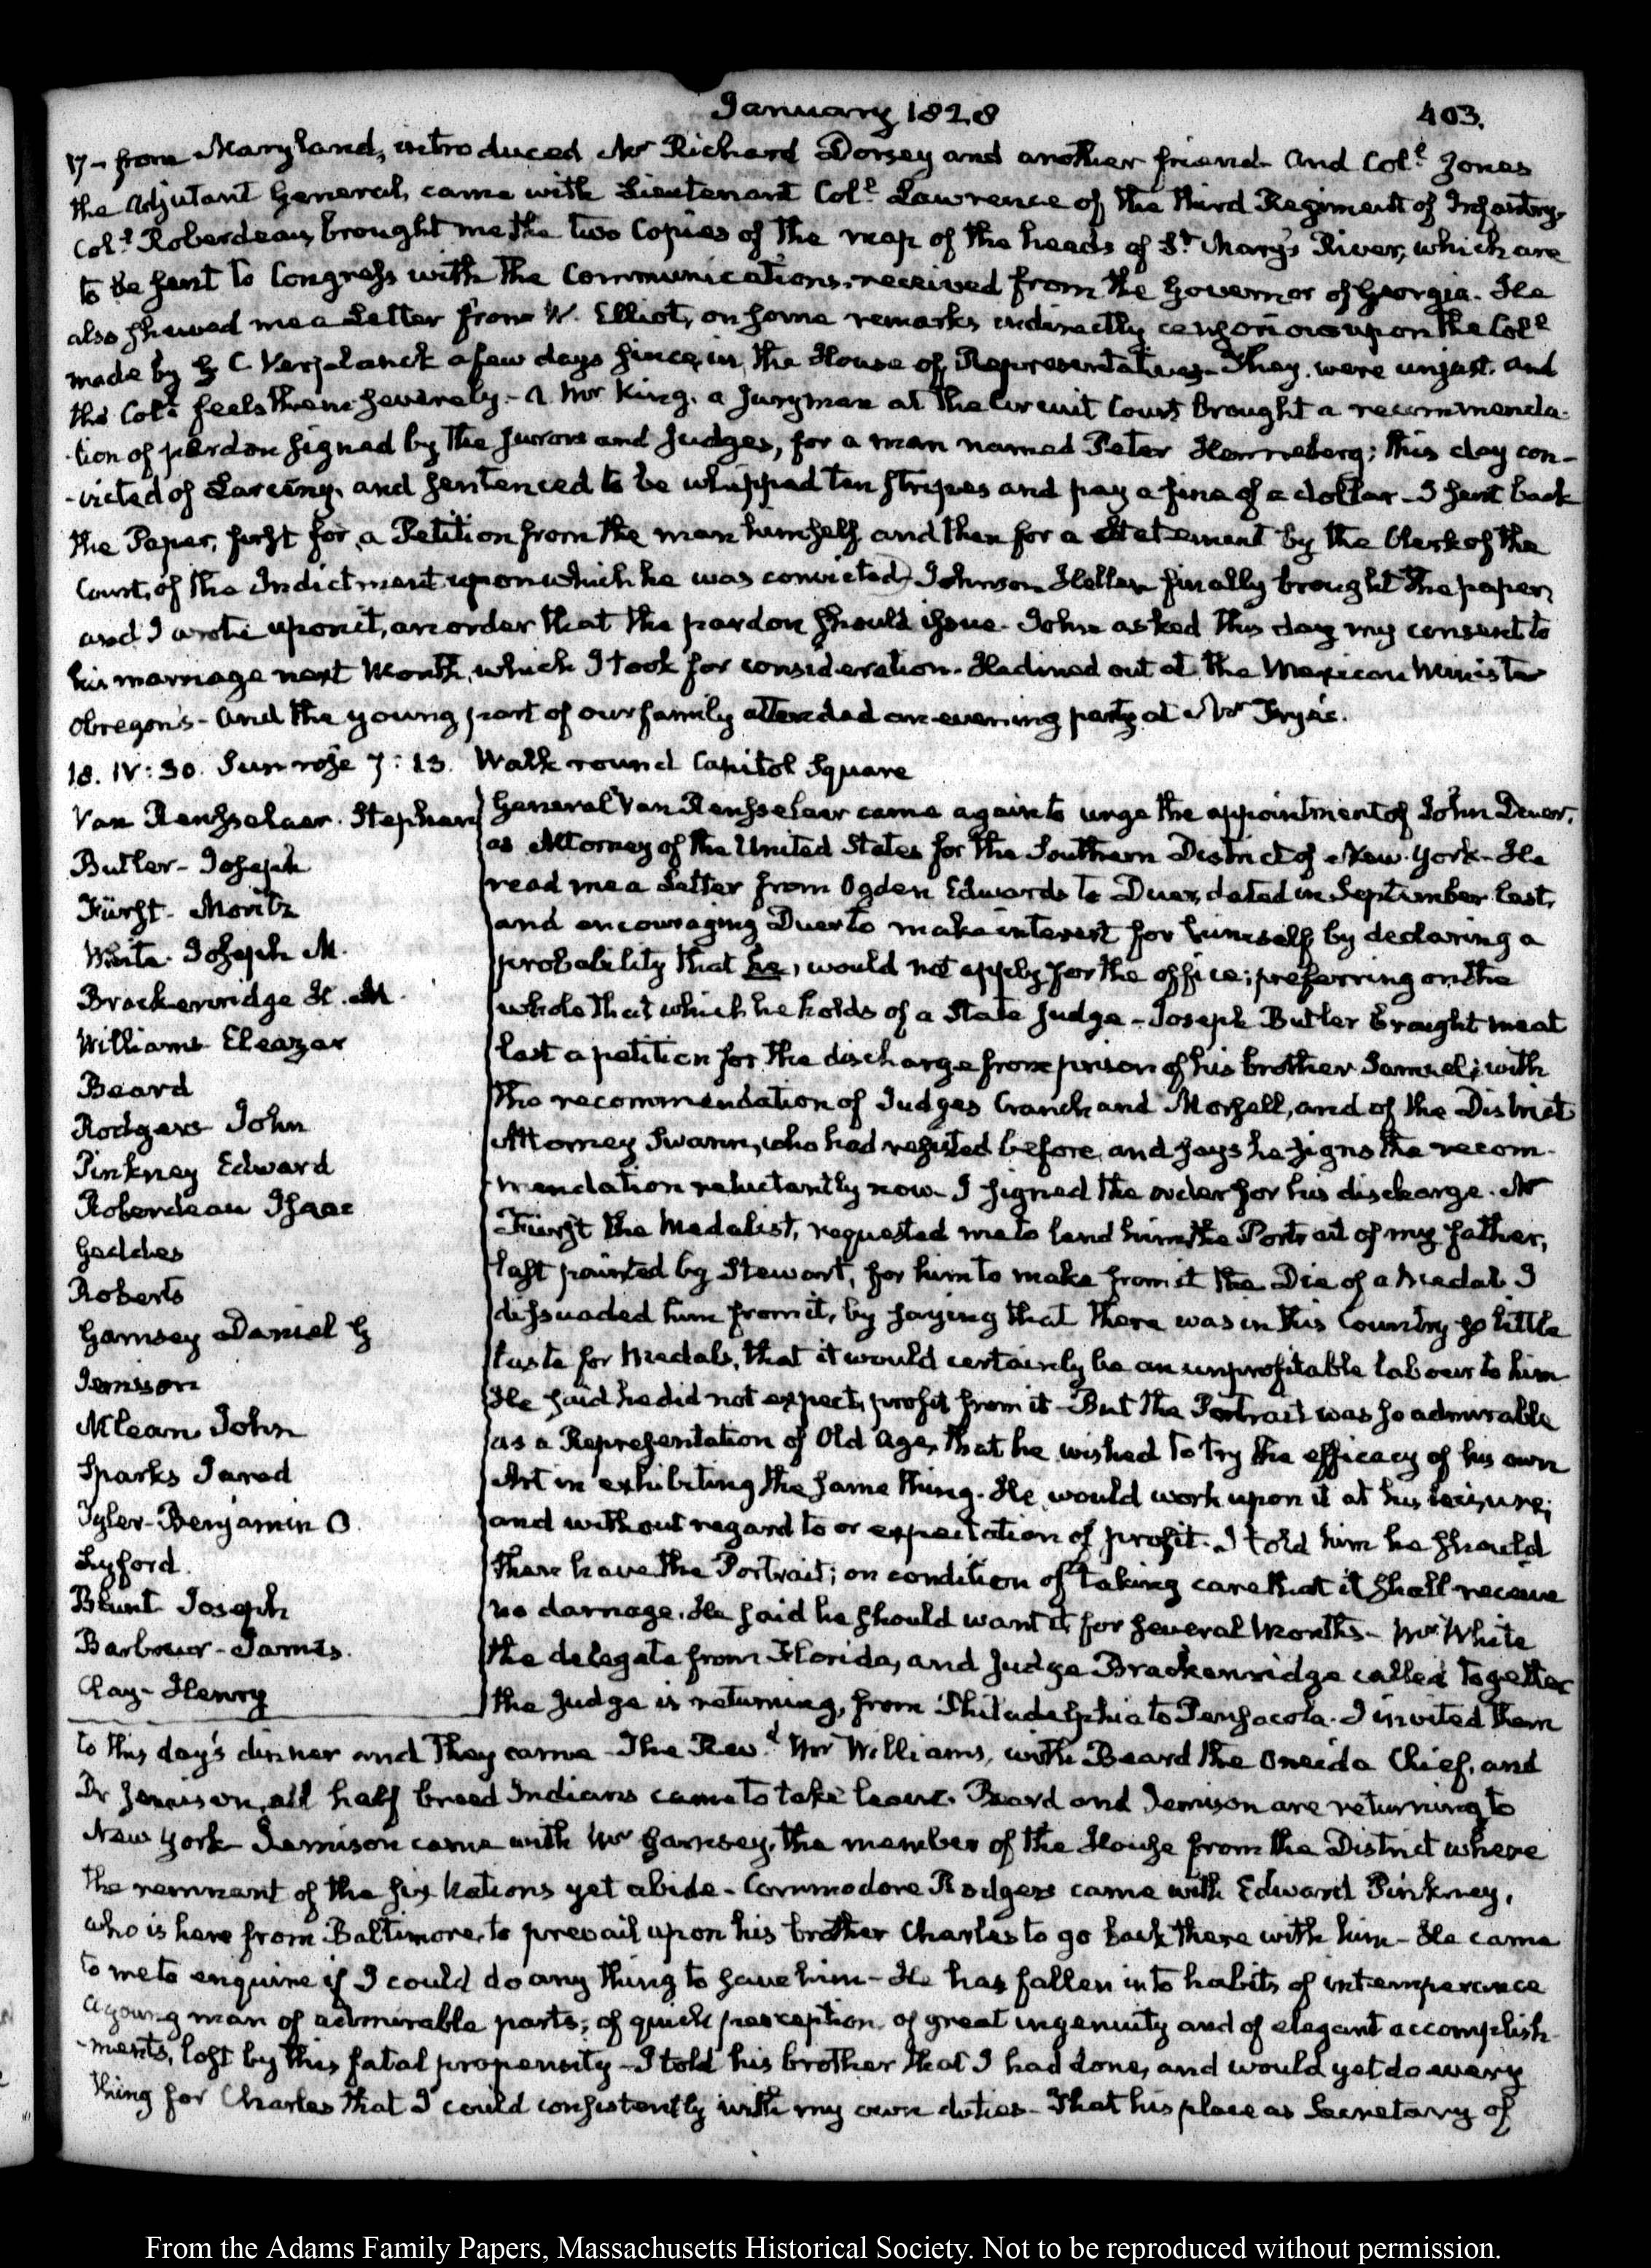 January 1828
403.
17 - from Maryland, introduced Mr Richard Dorsey and another friend - And Coll. Jones
the Adjutant General, came with Lieutenant Coll. Lawrence of the third Regiment of Infantry,
Coll. Roberdeau, brought me the two Copies of the map of the heads of St. Mary's River, which are
to be sent to Congress with the Communications, received from the Governor of Georgia. He
also shewed me a Letter from W. Elliot, on some remarks indirectly censorious upon the Coll.
made by G. C. Verplanck a few days since, in the House of Representatives - They were unjust, and
the Coll. feels them severely - A Mr King, a juryman at the Circuit Court brought a recommenda-
-tion of pardon signed by the Jurors and Judges, for a man named Peter Henneberg; this day con-
-victed of Larceny, and sentenced to be whipped ten stripes and pay a fine of a dollar - I sent back
the Paper, first for a Petition from the man himself, and then for a Statement by the Clerk of the
Court, of the Indictment upon which he was convicted) Johnson Hellen finally brought the paper,
and I wrote upon it, an order that the pardon should issue - John asked this day my consent to
his marriage next Month, which I took for consideration. He dined out at the Mexican Minister
Obregon's - And the young part of our family attended an evening party at Mr Frye's.
18. IV:30. Sun rose 7:13. Walk round Capitol Square
Van Rensselaer. Stephen
Butler - Joseph
Fürst - Moritz
White - Joseph M.
Brackenridge H. M.
Williams Eleazar
Beard
Rodgers John
Pinkney Edward
Roberdeau Isaac
Geddes
Roberts
Garnsey Daniel G
Jemison
McLean John
Sparks Jared
Tyler - Benjamin O.
Lyford.
Blunt Joseph
Barbour - James.
Clay - Henry
General Van Rensselaer came again to urge the appointment of John Duer,
as Attorney of the United States for the Southern District of New-York - He
read me a Letter from Ogden Edwards to Duer, dated in September last,
and encouraging Duer to make interest for himself, by declaring a
probability that he, would not apply for the office; preferring on the
whole that which he holds of a State Judge - Joseph Butler brought me at
last a petition for the discharge from prison of his brother Samuel; with
the recommendation of Judges Cranch and Morsell, and of the District
Attorney Swann, who had refused before, and says he signs the recom-
-mendation reluctantly now - I signed the order for his discharge. Mr
Fürst the Medalist, requested me to lend him the Portrait of my father,
last painted by Stewart, for him to make from it the Die of a Medal. I
dissuaded him from it, by saying that there was in this Country so little
taste for Medals, that it would certainly be an unprofitable labour to him
He said he did not expect profit from it - But the Portrait was so admirable
as a Representation of Old Age, that he wished to try the efficacy of his own
Art in exhibiting the same thing. He would work upon it at his leisure;
and without regard to or expectation of profit. I told him he should
then have the Portrait; on condition of taking care that it shall receive
no damage. He said he should want it for several Months - Mr White
the delegate from Florida, and Judge Brackenridge called together
the Judge is returning, from Philadelphia to Pensacola. I invited them
to this day's dinner and they came - The Revd. Mr Williams, with Beard the Oneida Chief, and
Dr Jemison, all half breed Indians came to take leave. Beard and Jemison are returning to
New York Jemison came with Mr Garnsey, the member of the House from the District where
the remnant of the six Nations yet abide - Commodore Rodgers came with Edward Pinkney,
who is here from Baltimore, to prevail upon his brother Charles to go back there with him - He came
to me to enquire if I could do any thing to save him - He has fallen into habits of intemperance
a young man of admirable parts; of quick perception, of great ingenuity and of elegant accomplish-
-ments, lost by this fatal propensity - I told his brother that I had done, and would yet do every
thing for Charles that I could consistently with my own duties - That his place as Secretary of
From the Adams Family Papers, Massachusetts Historical Society. Not to be reproduced without permission.